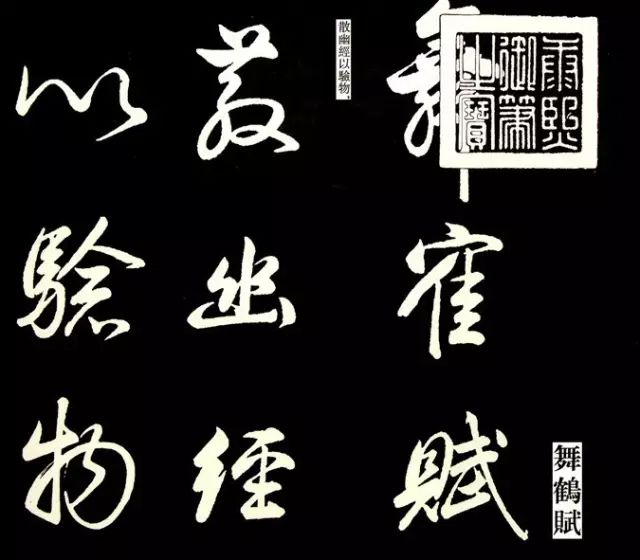 舞寉賦
康熙
御筆
之寶
舞鶴賦
散幽經以驗物，
散幽經
以騐物